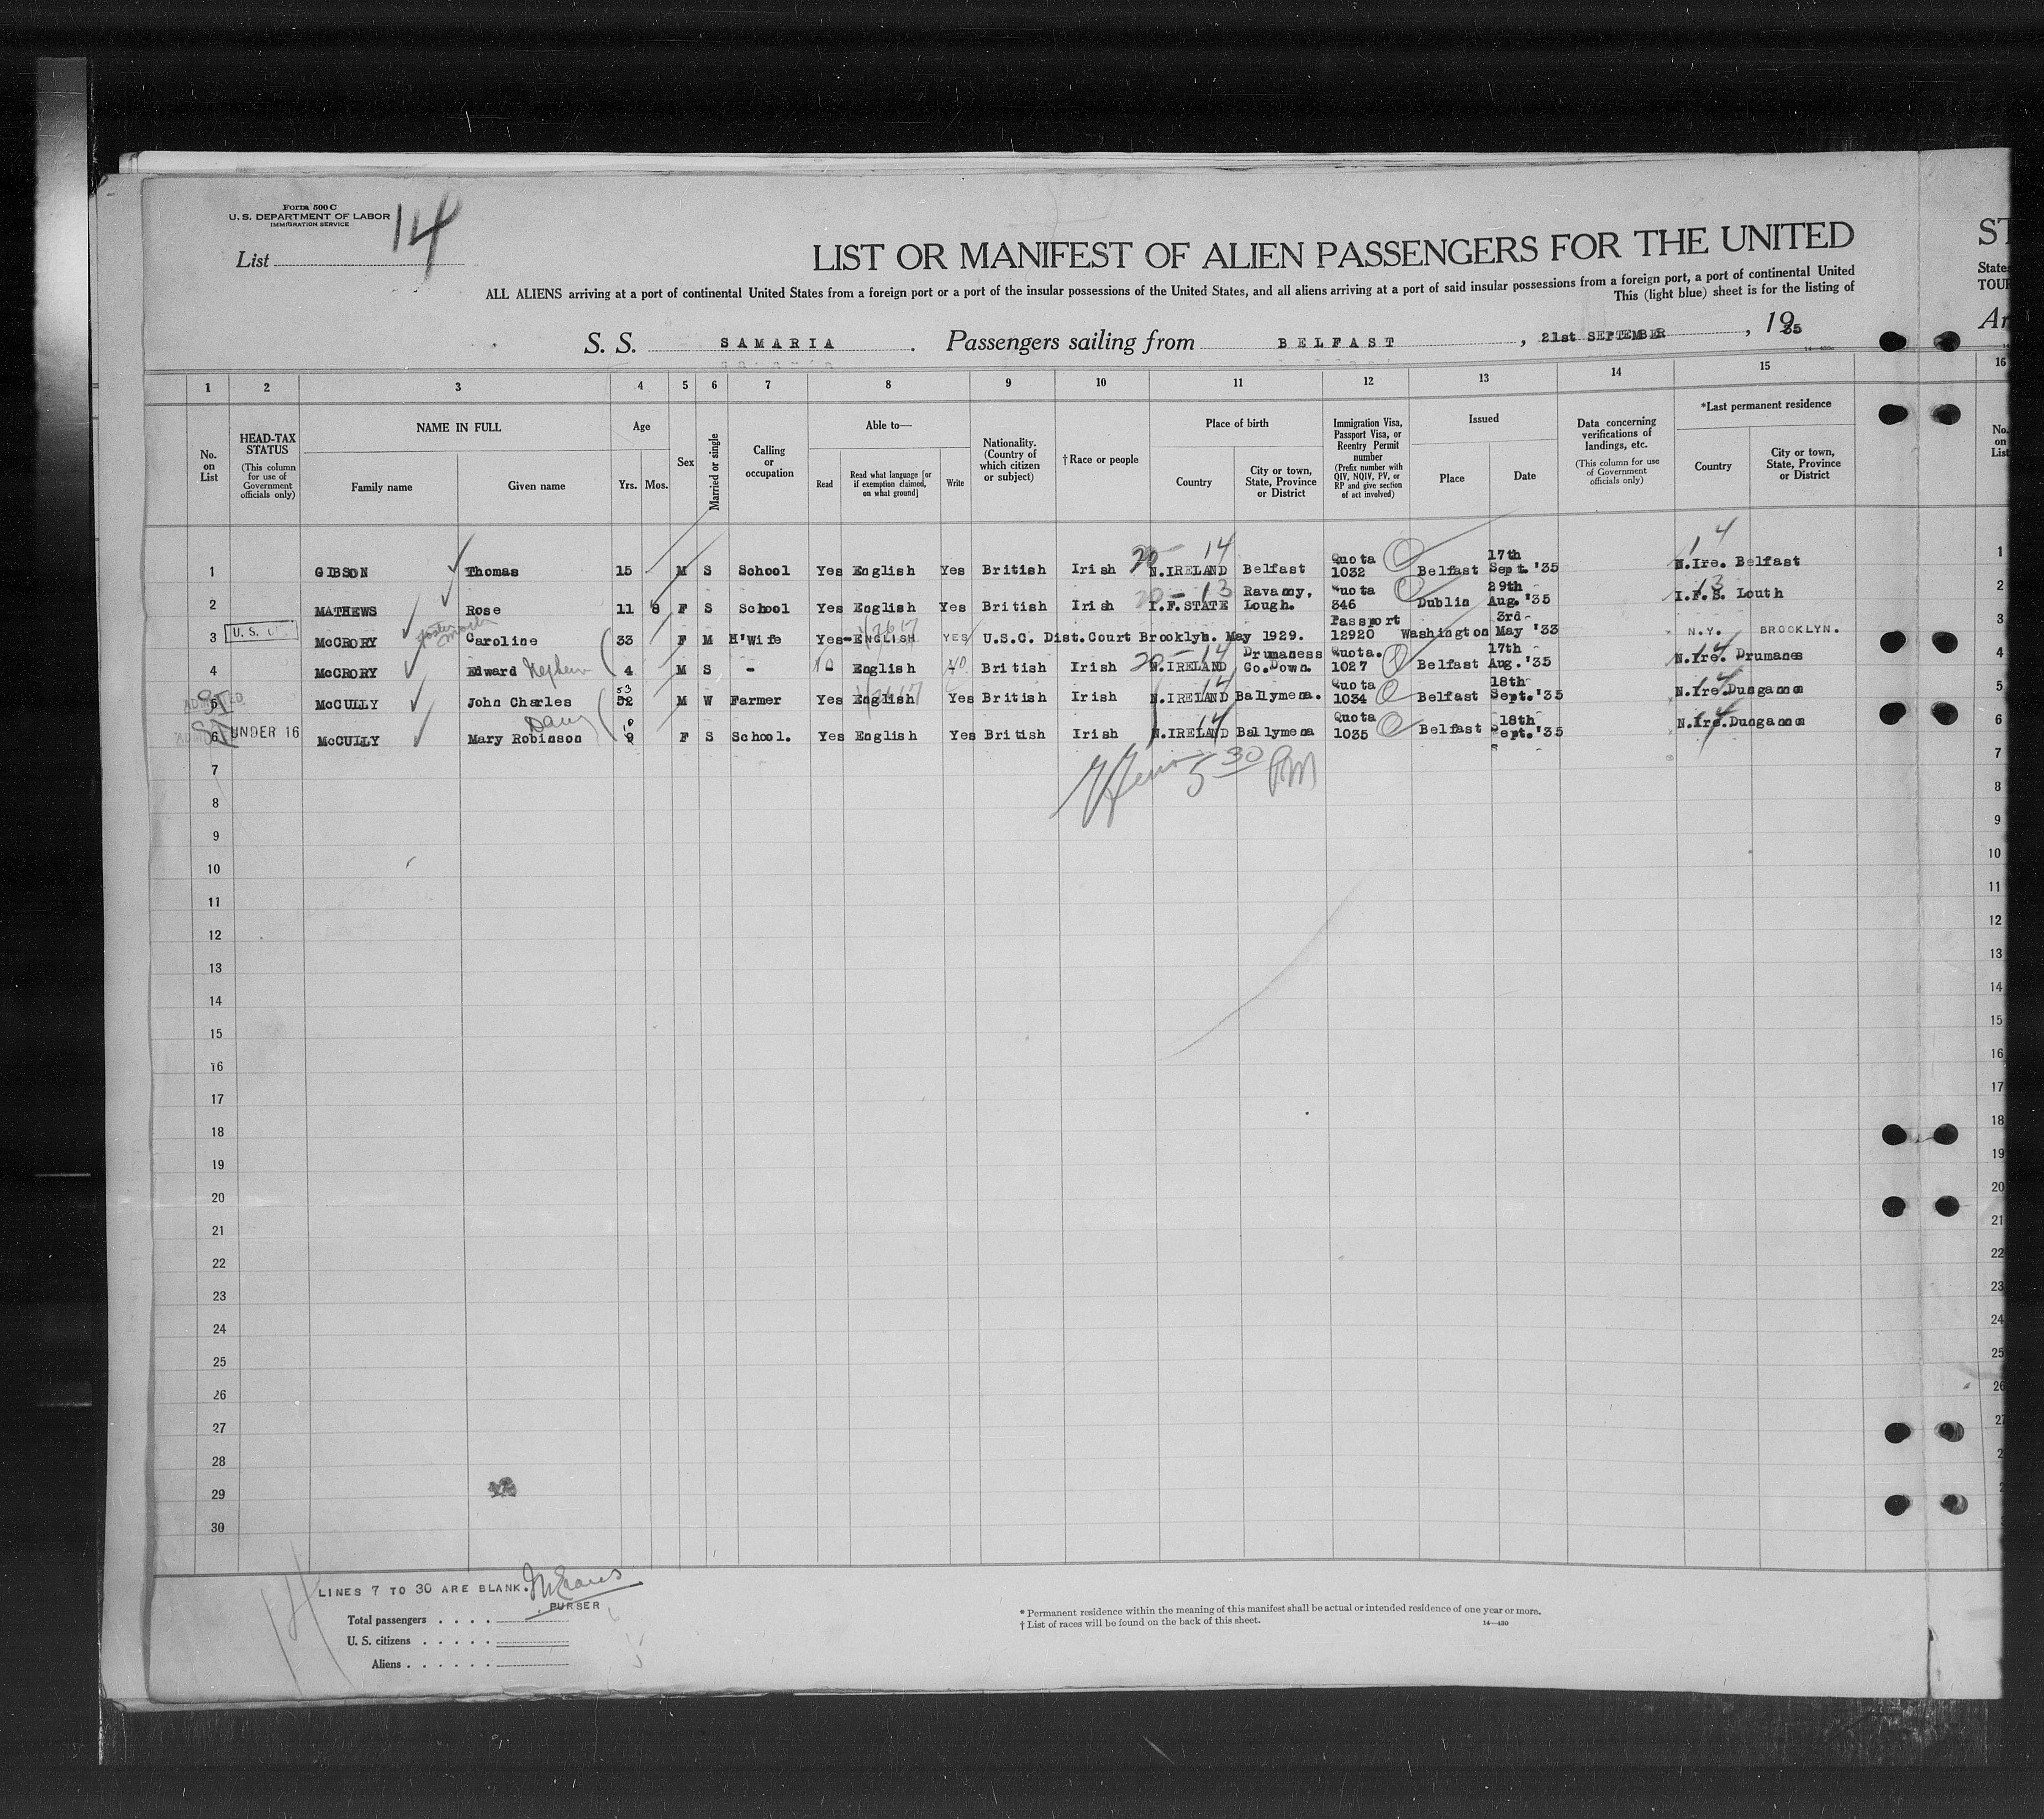 Form 500 C
U. S. DEPARTMENT OF LABOR
IMMIGRATION SERVICE
List 14
LIST OR MANIFEST OF ALIEN PASSENGERS FOR THE UNITED
ST
ALL ALIENS arriving at a port of continental United States from a foreign port or a port of the insular possessions of the United States, and all aliens arriving at a port of said insular possessions from a foreign port, a port of continental United
States
This (light blue) sheet is for the listing of
TOUR
S. S. SAMARIA . Passengers sailing from BELFAST , 21st SEPTEMBER , 1935
Ar
1 2 3 4 5 6 7 8 9 10 11 12 13 14 15 16
No. on List
HEAD-TAX STATUS (This column for use of Government officials only)
NAME IN FULL
Family name Given name
Age
Yrs. Mos.
Sex
Married or single
Calling or occupation
Able to—
Read Read what language [or if exemption claimed, on what ground] Write
Nationality. (Country of which citizen or subject)
† Race or people
Place of birth
Country City or town, State, Province or District
Immigration Visa, Passport Visa, or Reentry Permit number (Prefix number with QIV, NQIV, PV, or RP and give section of act involved)
Issued
Place Date
Data concerning verifications of landings, etc. (This column for use of Government officials only)
*Last permanent residence
Country City or town, State, Province or District
No. on List
1 GIBSON Thomas 15 M S School Yes English Yes British Irish 20 - 14 N.IRELAND Belfast Quota 1032 Belfast 17th Sept.'35 14 N.Ire. Belfast 1
2 MATHEWS Rose 11 8 F S School Yes English Yes British Irish 20 - 13 I.F.STATE Lough. Quota 346 Dublin 29th Aug.'35 13 I.F.S. Louth 2
3 U. S. McCRORY Caroline 33 F M H'Wife Yes- ENGLISH YES U.S.C. Dist.Court Brooklyn. May 1929. Passport 12920 Washington 3rd May '33 N.Y. BROOKLYN. 3
4 McCRORY Edward Nephew 4 M S - - English - British Irish 20 - 14 N.IRELAND Drumaness Co.Down. Quota. 1027 Belfast 17th Aug.'35 14 N.Ire. Drumanes 4
5 SI McCULLY John Charles 53 52 M W Farmer Yes English Yes British Irish 14 N.IRELAND Ballymena. Quota 1034 Belfast 18th Sept.'35 14 N.Ire.Dungannon 5
6 SI UNDER 16 McCULLY Mary Robinson 10 9 F S School. Yes English Yes British Irish 14 N.IRELAND Ballymena Quota 1035 Belfast 18th Sept.'35 14 N.Ire.Dungannon 6
7 5 30 PM 7
8 8
9 9
10 10
11 11
12 12
13 13
14 14
15 15
16 16
17 17
18 18
19 19
20 20
21 21
22 22
23 23
24 24
25 25
26 26
27 27
28
29
30
LINES 7 TO 30 ARE BLANK.
PURSER
Total passengers . . . .
U. S. citizens . . . . .
Aliens . . . . . .
* Permanent residence within the meaning of this manifest shall be actual or intended residence of one year or more.
† List of races will be found on the back of this sheet.
14—430